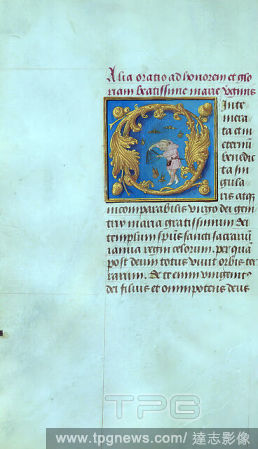 Alia oratio ad honorem et glo
riam beatissime marie virginis
Inte
mera
ta et in
eternū
benedic
ta sin
gula
ris atq3
incomparabilis virgo dei geni
trix maria gratissimum dei
templum spūs sancti sacrariū
ianua regni celorum. per quā
post deum totus vivit orbis ter
rarum. De te enim unigenit9
dei filius et omnipotens deus
TPG
www.tpgnews.com/ 達志影像